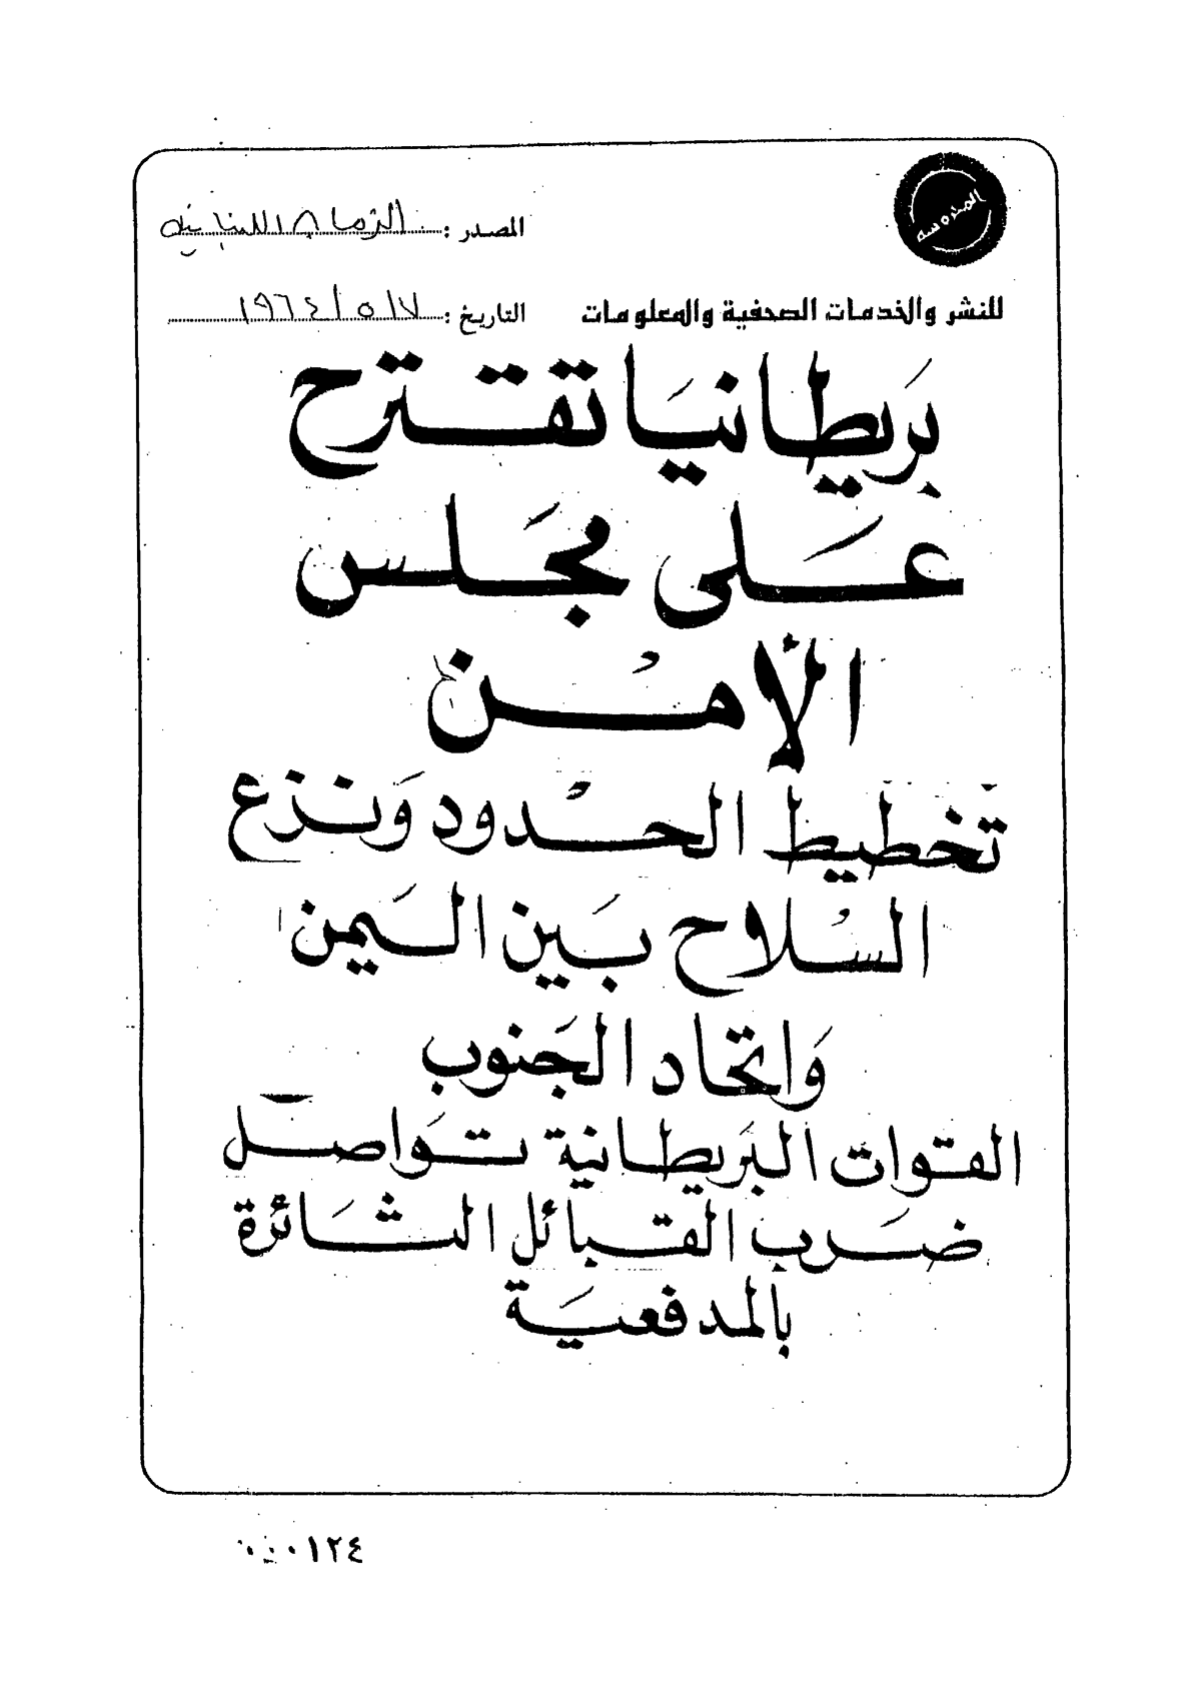 المدوسه
المصدر : الزمان اللبنانيه
للنشر والخدمات الصحفية والمعلومات
التاريخ : ١٩٦٤/٥/٧
بَريطانيَا تقترح
عَلى مجَلس
الأمْن
تخطيط الحْدود وَنزع
السْلاح بَين اليَمن
وَاتحاد الجَنوب
القوات البَريطانية تَواصل
ضَرب القبائل الثَائرة
بالمدفعيَة
٠٠٠١٢٤